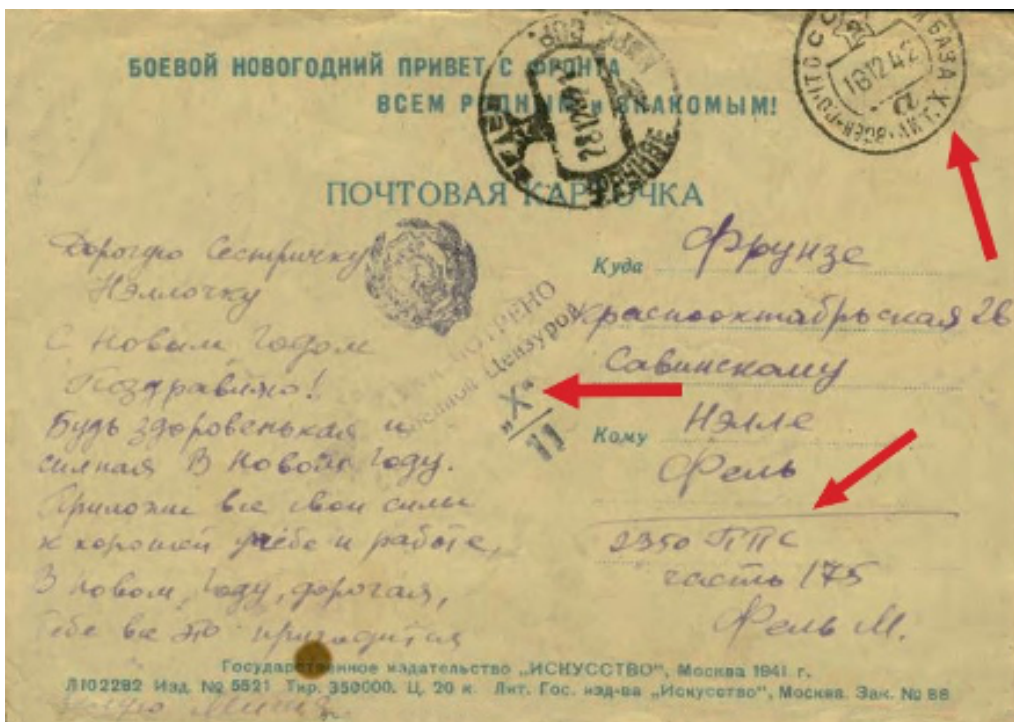 БОЕВОЙ НОВОГОДНИЙ ПРИВЕТ С ФРОНТА
ВСЕМ РОДНЫМ и ЗНАКОМЫМ!
ПОЧТОВАЯ КАРТОЧКА
18 12 42
28 12 42
ФРУНЗЕ
Дорогую Сестричку
Нэллочку
С Новым Годом
Поздравляю!
Будь здоровенькая и
сильная В Новом Году.
Приложи все свои силы
к хорошей учёбе и работе,
В Новом, Году, дорогая,
Тебе все это пригодится
ПРОСМОТРЕНО
Военной Цензурой
„Х“
11
Куда Фрунзе
Краснооктябрьская 26
Савинскому
Кому Нэлле
Фель
2350 ППС
часть 175
Фель М.
Государственное издательство „ИСКУССТВО“, Москва 1941 г.
Л102292 Изд. № 5521 Тир. 350000. Ц. 20 к. Лит. Гос. изд-ва „Искусство“, Москва. Зак. № 88